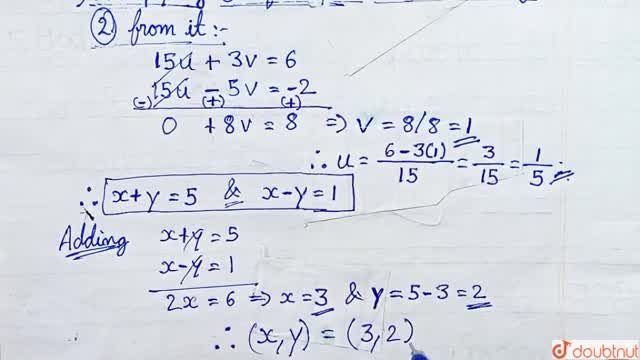 ② from it :-
15u + 3v = 6
15u - 5v = -2
(-) (+) (+)
0 + 8v = 8 ⇒ v = 8/8 = 1
∴ u = 6-3(1)/15 = 3/15 = 1/5
∴ x+y = 5 & x-y = 1
Adding x+y = 5
x-y = 1
2x = 6 ⇒ x = 3 & y = 5-3 = 2
∴ (x, y) = (3, 2)
doubtnut